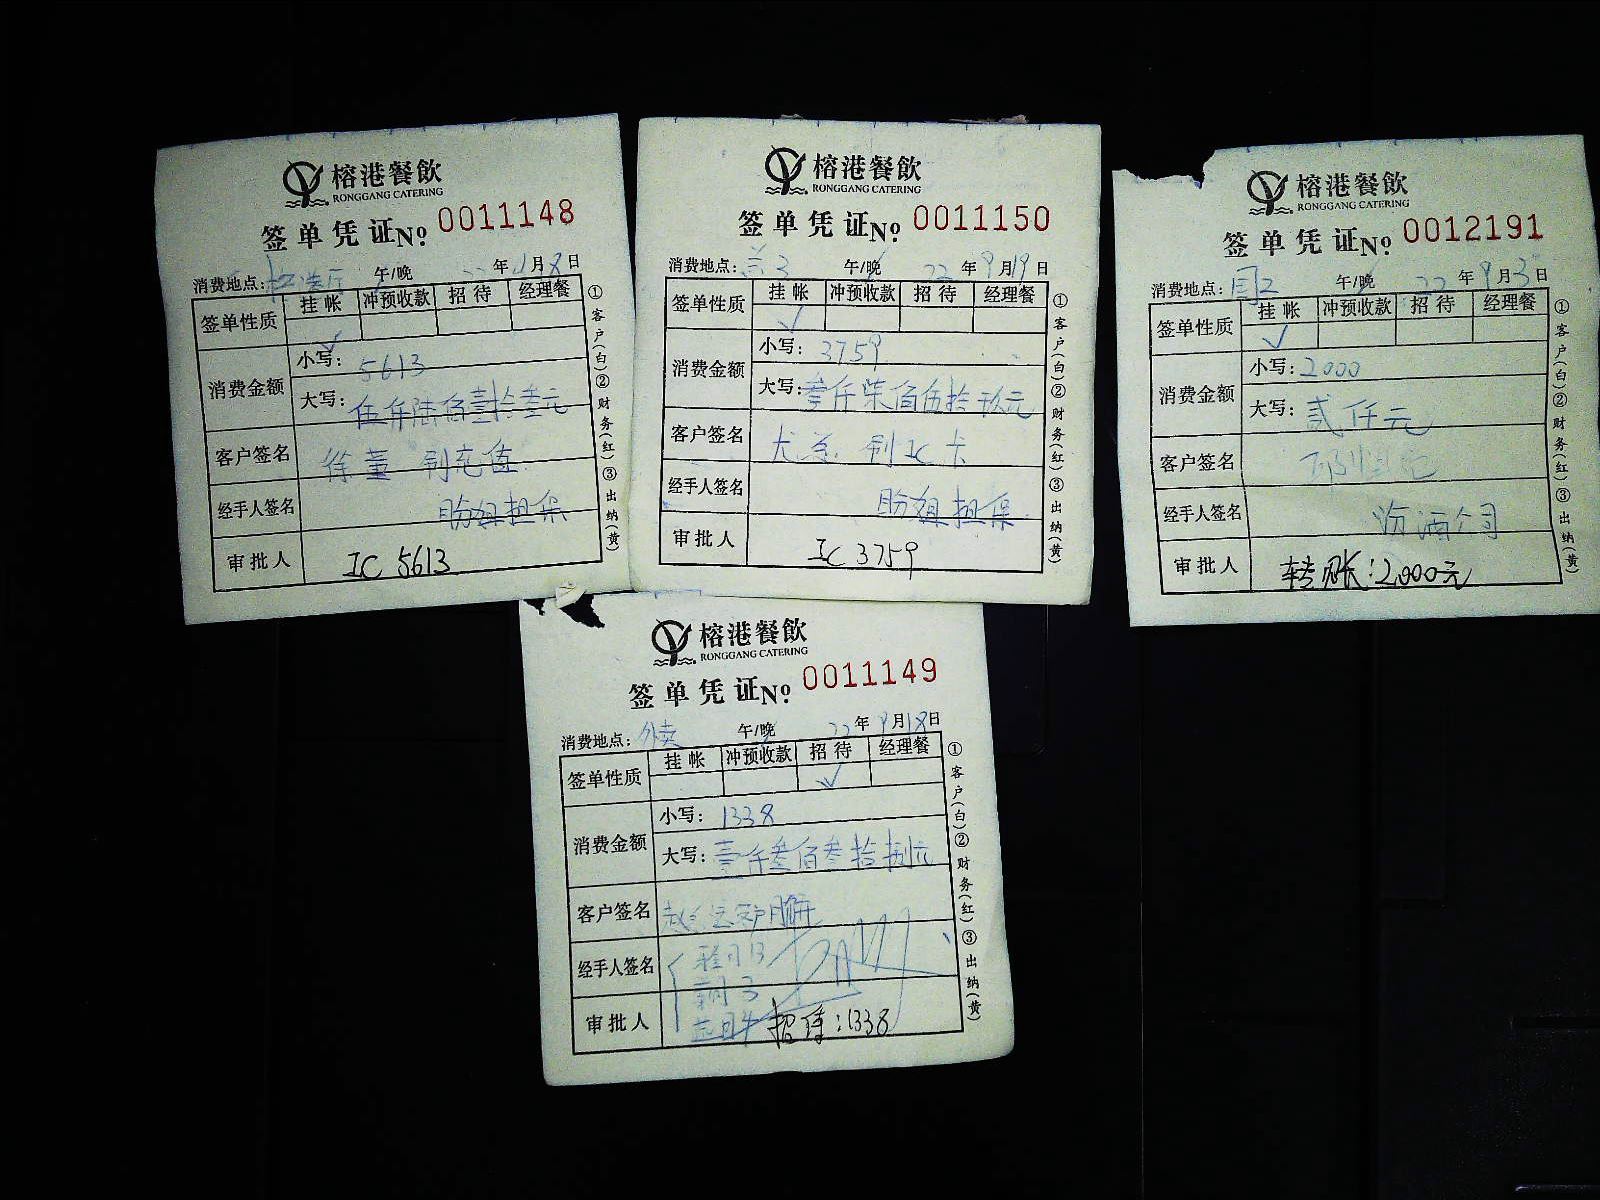 榕港餐飲
RONGGANG CATERING
签单凭证 No. 0011148
消费地点: 午/晚 22年 月8日
签单性质 挂帐 冲预收款 招待 经理餐
消费金额 小写: 5613
大写: 伍仟陆佰壹拾叁元
客户签名 徐董 制充值
经手人签名 盼姐担保
审批人 IC 5613
①客户(白)②财务(红)③出纳(黄)
榕港餐飲
RONGGANG CATERING
签单凭证 No. 0011150
消费地点: 午/晚 22年9月19日
签单性质 挂帐 冲预收款 招待 经理餐
消费金额 小写: 3759
大写: 叁仟柒佰伍拾玖元
客户签名 尤总 制IC卡
经手人签名 盼姐担保
审批人 IC 3759
①客户(白)②财务(红)③出纳(黄)
榕港餐飲
RONGGANG CATERING
签单凭证 No. 0012191
消费地点: 午/晚 22年9月3日
签单性质 挂帐 冲预收款 招待 经理餐
消费金额 小写: 2000
大写: 贰仟元
客户签名
经手人签名 汾酒公司
审批人 转账:2000元
①客户(白)②财务(红)③出纳(黄)
榕港餐飲
RONGGANG CATERING
签单凭证 No. 0011149
消费地点: 外卖 午/晚 22年9月18日
签单性质 挂帐 冲预收款 招待 经理餐
消费金额 小写: 1338
大写: 壹仟叁佰叁拾捌元
客户签名
经手人签名
审批人 招待:1338
①客户(白)②财务(红)③出纳(黄)